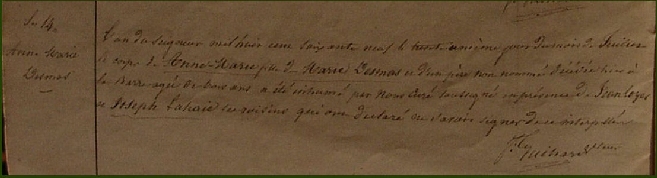 Anne Marie
Desmas
L'an du Seigneur mil huit cent soixante neuf le trente unième jour du mois de
le corps de Anne-Marie fille de Marie Desmas et d'un père non nommé décédée hier à
la Barre agée de trois ans a été inhumé par nous curé soussigné en présence de Jean
et Joseph Lahaie ses voisins qui ont déclaré ne savoir signer de ce interpellés